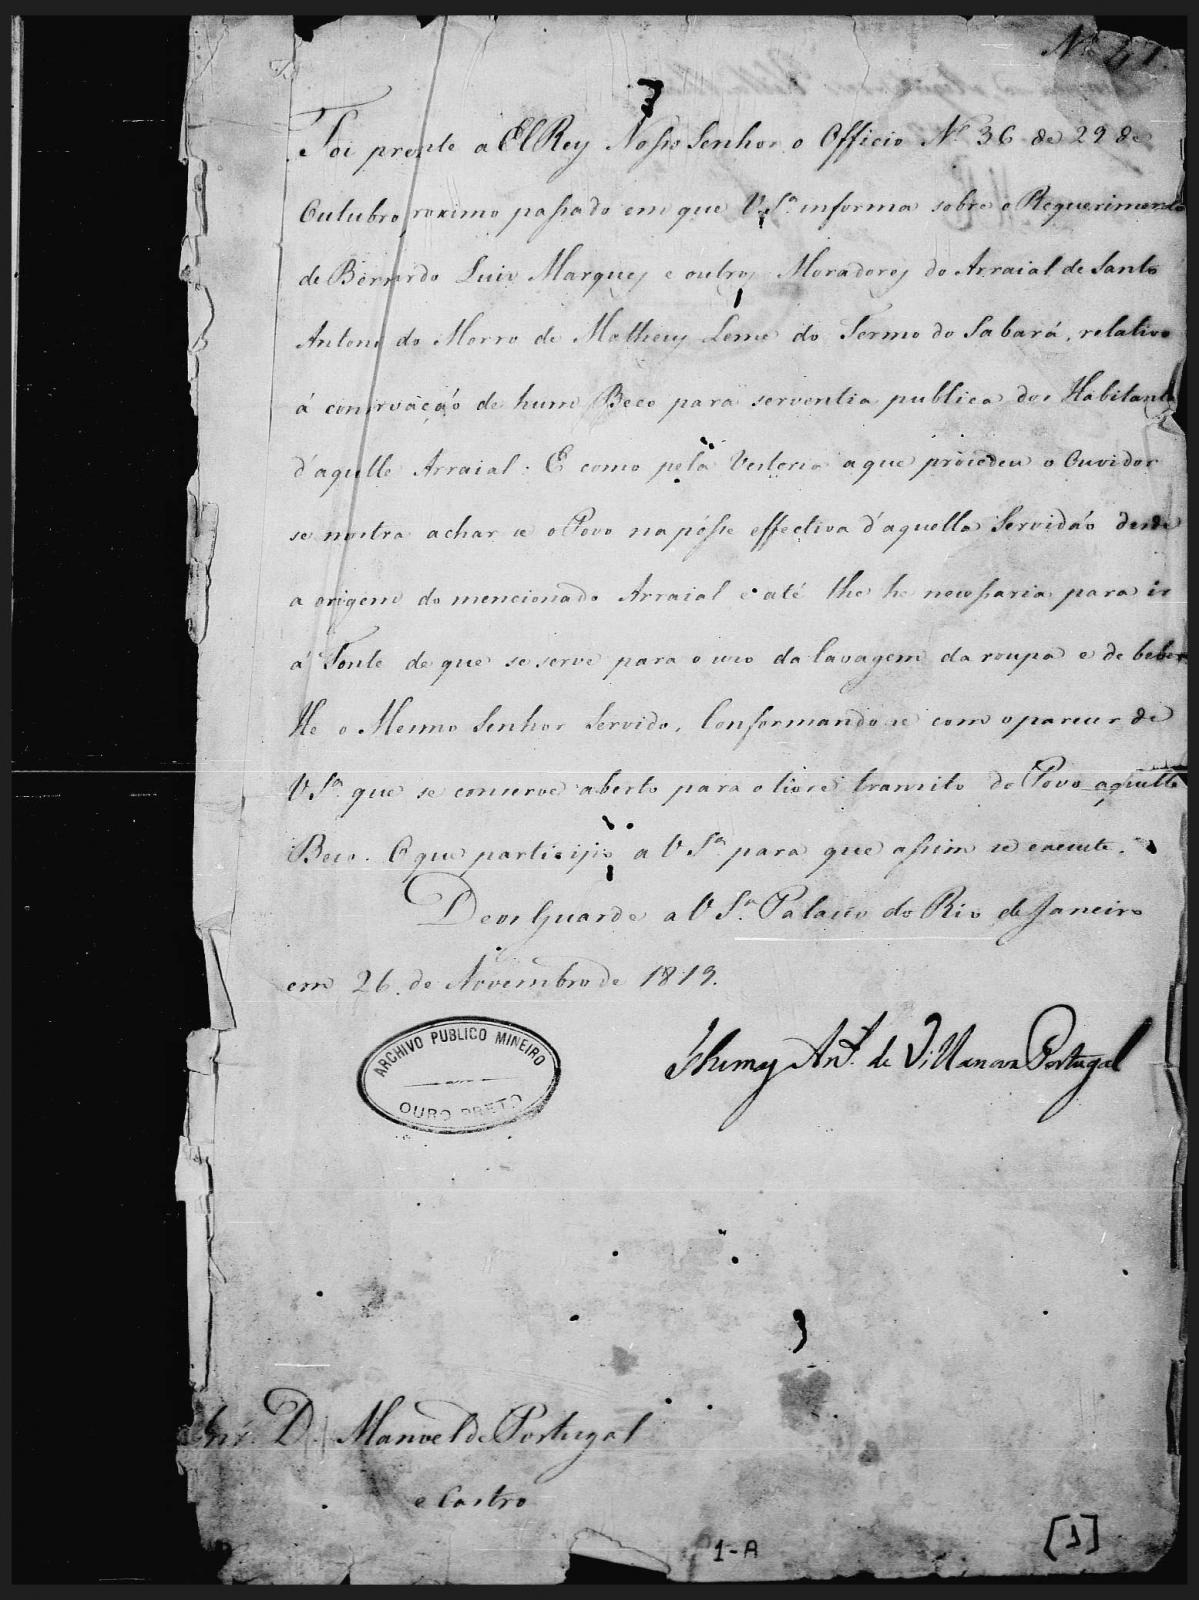 Nº 41.
Foi prezte a ElRey Nosso Senhor o Officio Nº 36 de 29 de
Outubro proximo passado em que V. Sª informa sobre o Requerimento
de Bernardo Luiz Marques e outros Moradores do Arraial de Santo
Antonio do Morro de Matheus Leme do Termo do Sabará, relativo
á conservação de hum Beco para serventia publica dos Habitantes
d'aquelle Arraial: E como pela Vestoria a que procedeu o Ouvidor
se mostra achar se o Povo na pósse effectiva d'aquella Servidão desde
a origem do mencionado Arraial e até lhe he necessaria para ir
á Fonte de que se serve para o uzo da lavagem da roupa e de beber
He o Mesmo Senhor Servido, Conformando se com o parecer de
V Sª que se conserve aberto para o livre tranzito do Povo aquelle
Beco. O que participo a V Sª para que assim se execute.
Deos Guarde a V Sª Palacio do Rio de Janeiro
em 26. de Novembro de 1819.
Thomaz Antº de Villanova Portugal
ARCHIVO PUBLICO MINEIRO
OURO PRETO
Snr. D. Manoel de Portugal
e Castro
1-A
[1]